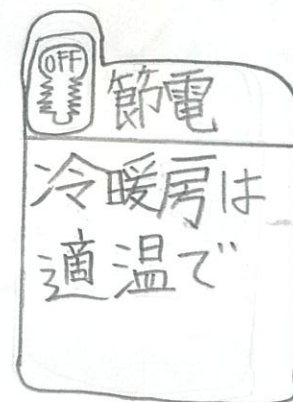 OFF
節電
冷暖房は
適温で